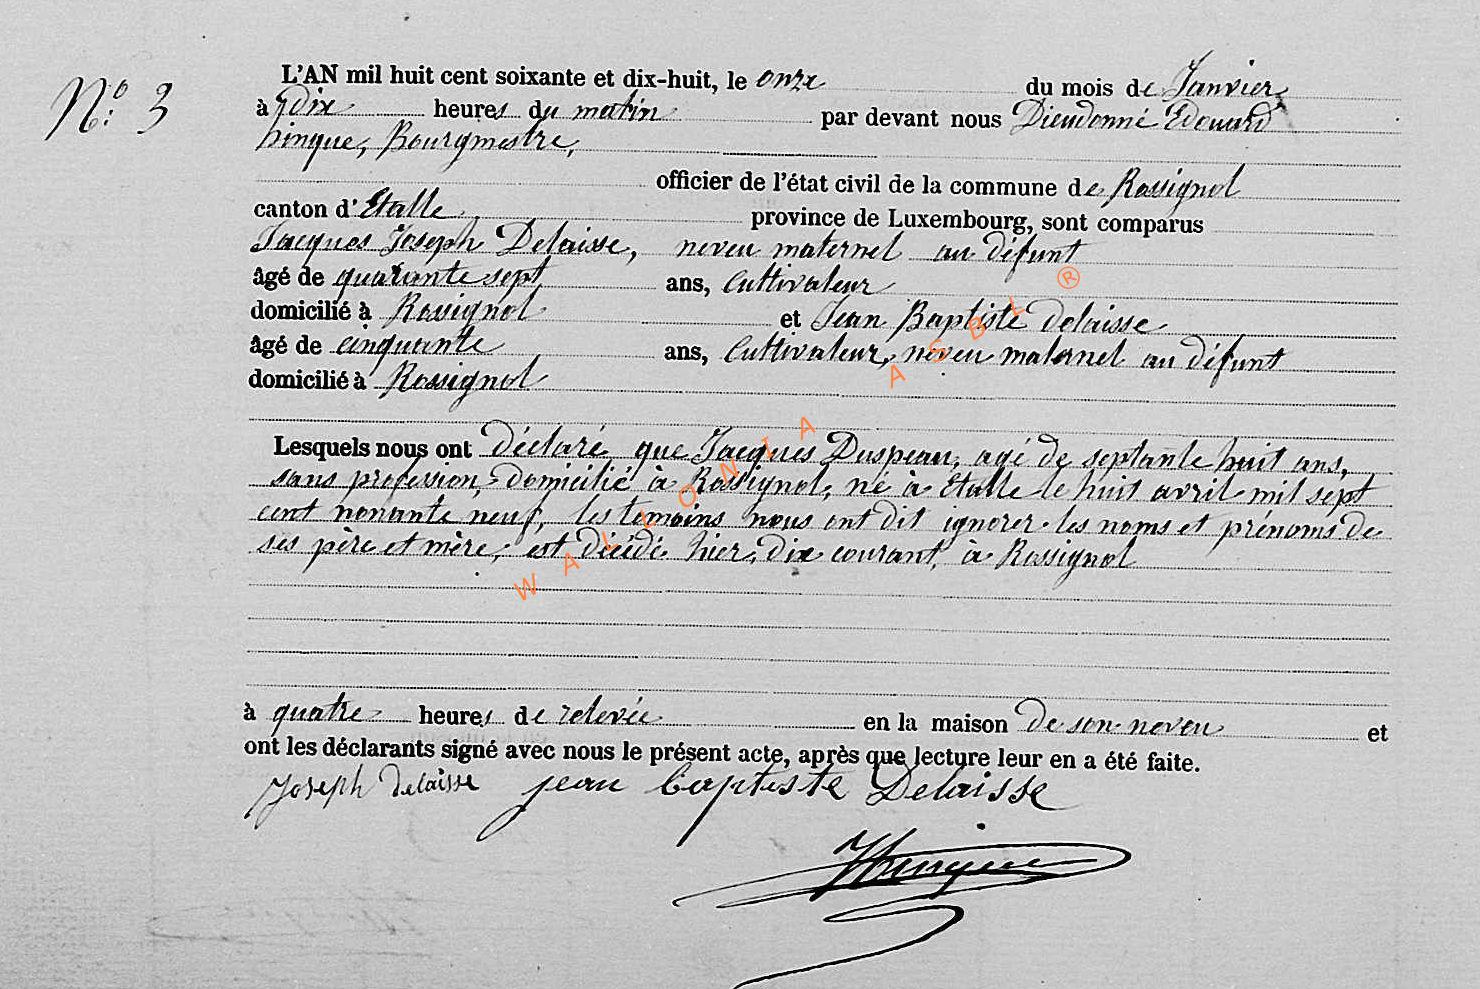 N° 3
L'AN mil huit cent soixante et dix-huit, le onze du mois de Janvier
à dix heures du matin par devant nous Dieudonné Edouard
hinque, Bourgmestre,
officier de l'état civil de la commune de Rossignol
canton d'Etalle, province de Luxembourg, sont comparus
Jacques Joseph Delaisse, neveu maternel au défunt
âgé de quarante sept ans, Cultivateur
domicilié à Rossignol et Jean Baptiste delaisse
âgé de cinquante ans, Cultivateur, neveu maternel au défunt
domicilié à Rossignol
Lesquels nous ont déclaré que Jacques Duspeau, agé de septante huit ans,
sans profession, domicilié à Rossignol, né à Etalle le huit avril mil sept
cent nonante neuf, les témoins nous ont dit ignorer les noms et prénoms de
ses père et mère, est décédé hier, dix courant, à Rossignol
à quatre heures de relevée en la maison de son neveu et
ont les déclarants signé avec nous le présent acte, après que lecture leur en a été faite.
Joseph Delaisse jean baptiste Delaisse
WALLONIA ASBL ®